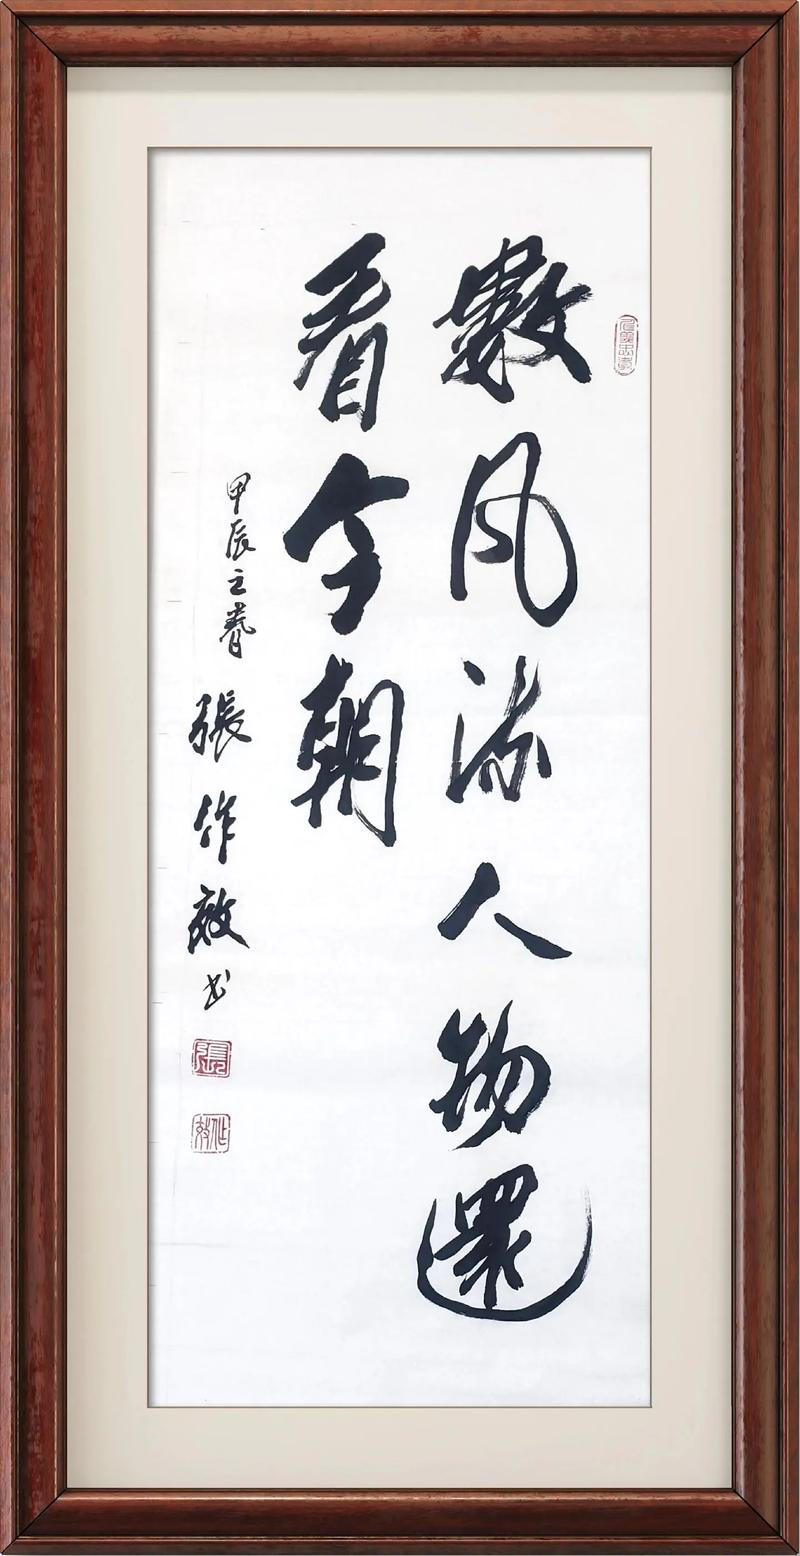 數風流人物還
看今朝
甲辰之春
張作效書
張
作效